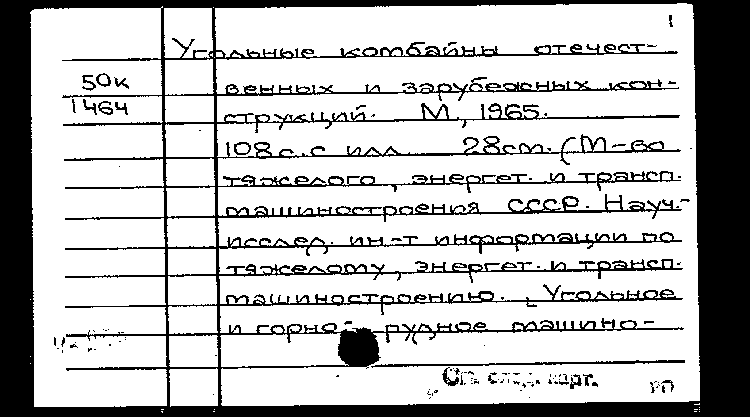 1
Угольные комбайны отечест-
50к
1464
венных и зарубежных кон-
струкций. М., 1965.
108с. с илл. 28см. (М-во
тяжелого, энергет. и трансп.
машиностроения СССР. Науч.-
исслед. ин.-т информации по
тяжелому, энергет. и трансп.
машиностроению. Угольное
и горно-рудное машино-
См. след. карт.